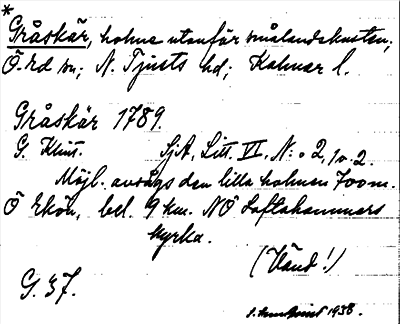 *
Gråskär, holme utanför smålandskusten,
Ö. Ed sn; N. Tjusts hd; Kalmar l.
Gråskär 1789.
G. Klint. SjA, Litt. VI, N:o 2, 1 o. 2.
Möjl. avsågs den lilla holmen 700 m.
Ö Ekön, bel. 9 km. NÖ Loftahammars
kyrka.
(Vänd!)
G. 37.
1938.